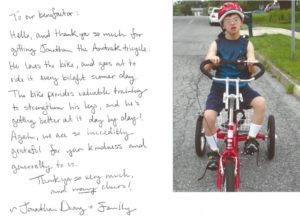 To our benefactor:
Hello, and thank you so much for
getting Jonathan the Amtrak tricycle.
He loves the bike, and goes out to
ride it every bright summer day.
The bike provides valuable training
to strengthen his legs, and he's
getting better at it day by day!
Again, we are so incredibly
grateful for your kindness and
generosity to us.
Thank you so very much,
and many cheers!
Jonathan + Family